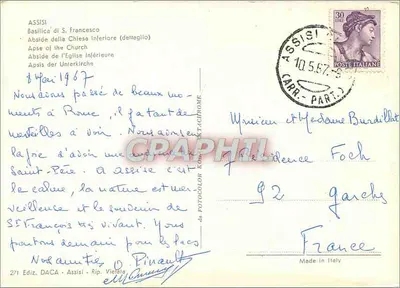 ASSISI
Basilica di S. Francesco
Abside della Chiesa Inferiore (dettaglio)
Apse of the Church
Abside de l'Eglise Inférieure
Apsis der Unterkirche
8 Mai 1967
Nous avons passé de beaux mo-
ments à Rome, il y a tant de
merveilles à voir. Nous avons eu
la joie d'avoir une audience du
Saint-Père. A Assise c'est
le calme, la nature est mer-
veilleuse et le souvenir de
St François très vivant. Nous
partons demain pour les lacs.
Nos amitiés
Pinault
271 Ediz. DACA - Assisi - Rip. Vietata
da FOTOCOLOR
CPAPHIL
ASSISI
10.5.67
(ARR.- PART.)
30
POSTE ITALIANE
Monsieur et Madame Burdillat
Résidence Foch
92 Garches
France
Made in Italy